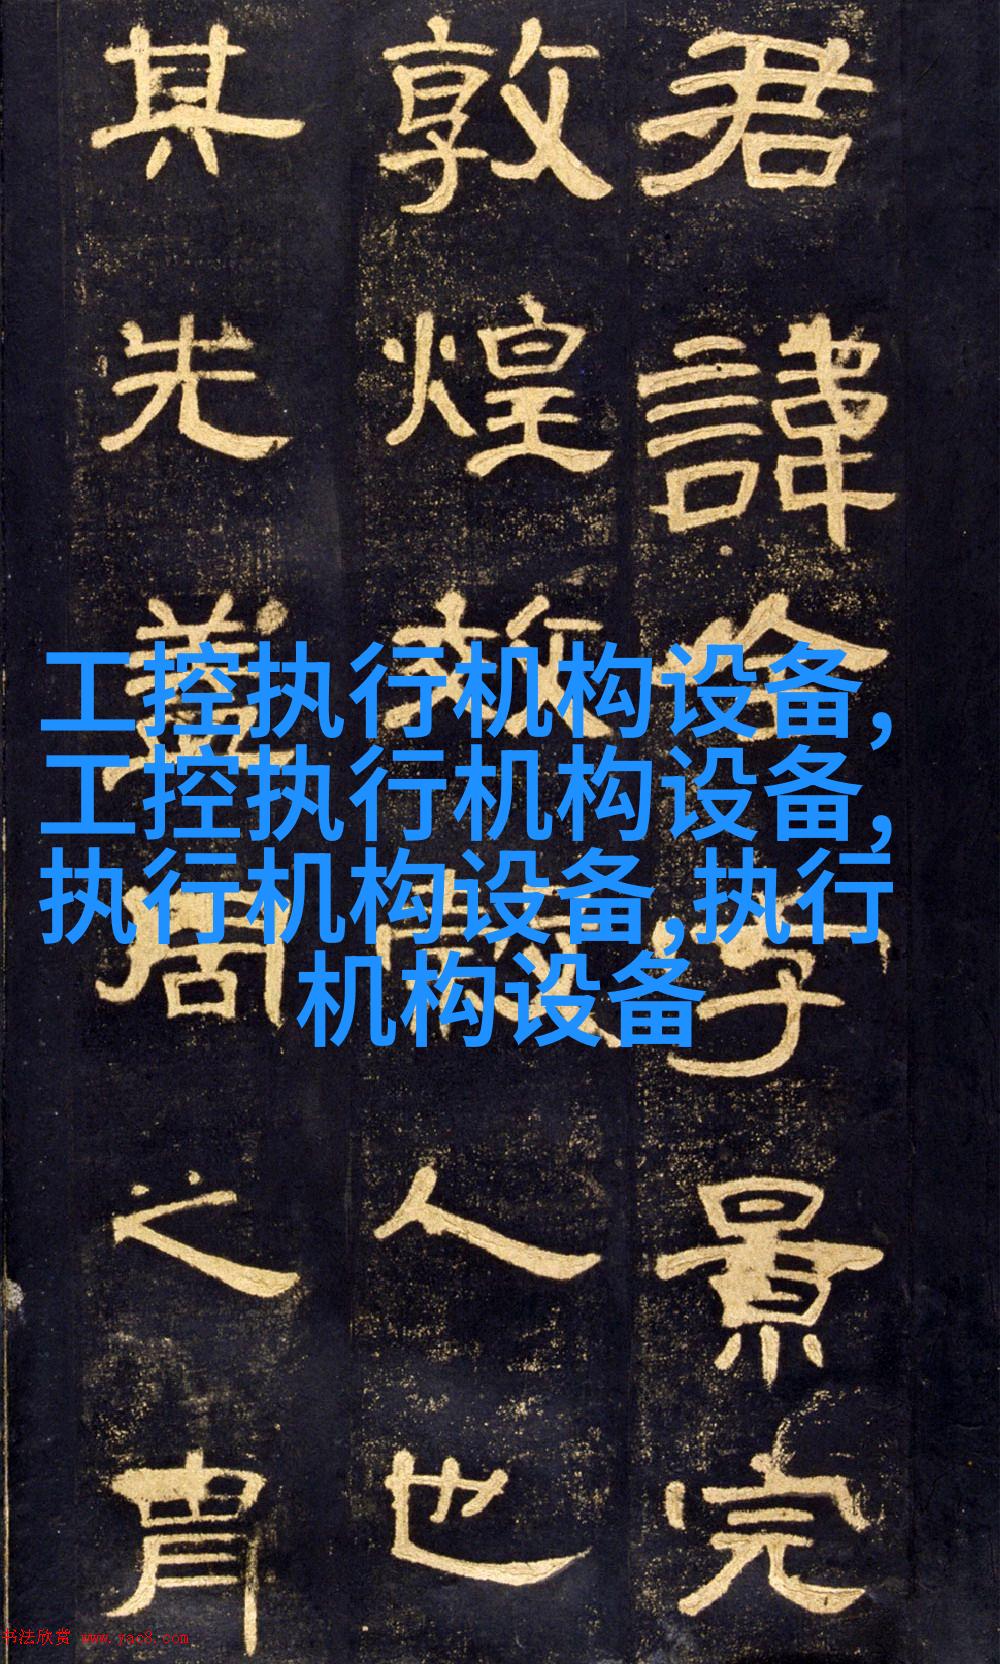 君諱全字景完
敦煌效穀人也
其先蓋周之胄
工控执行机构设备,
工控执行机构设备,
执行机构设备,执行
机构设备
书法欣赏 www.yac8.com